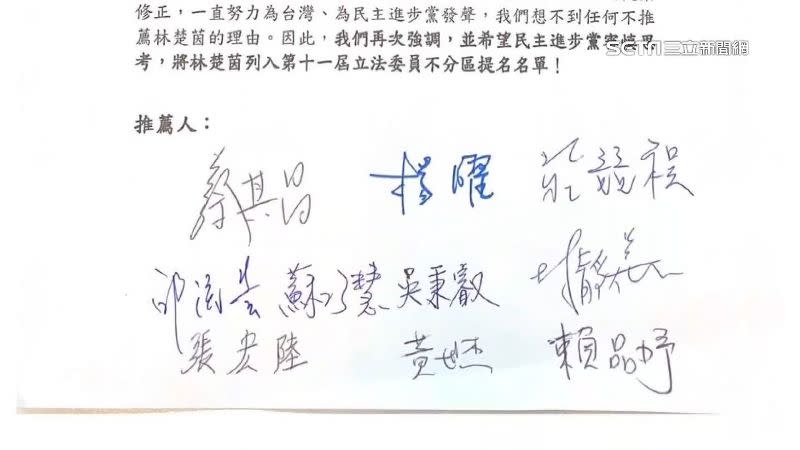 修正，一直努力為台灣、為民主進步黨發聲，我們想不到任何不推
三立新聞網
薦林楚茵的理由。因此，我們再次強調，並希望民主進步黨審慎思
考，將林楚茵列入第十一屆立法委員不分區提名名單！
推薦人：
蔡其昌 楊曜 莊競程
蘇巧慧 吳秉叡
張宏陸 黃世杰 賴品妤